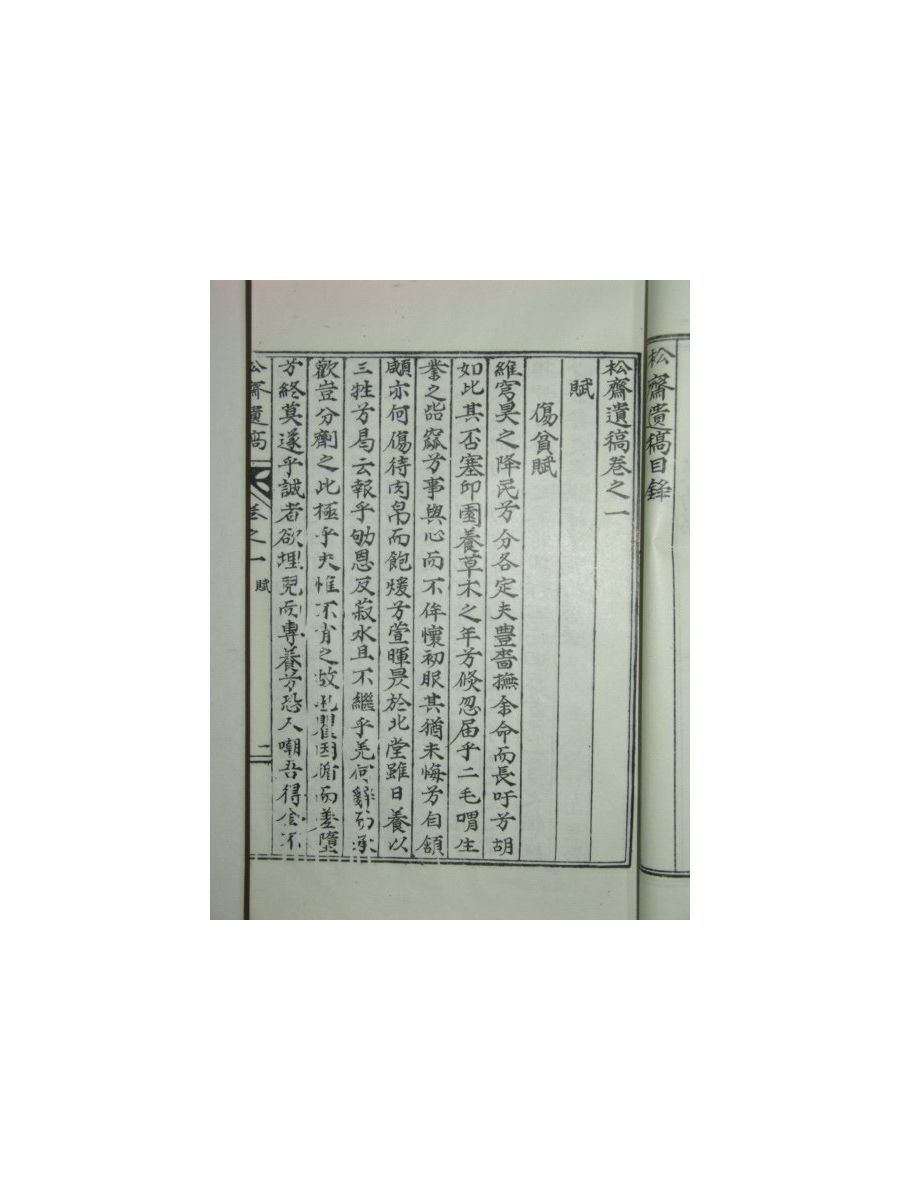 松齋遺稿目錄
松齋遺稿卷之一
賦
傷貧賦
維穹昊之降民兮分各定夫豊嗇撫余命而長吁兮胡
如此其否塞卬園養草木之年兮倐忽届乎二毛喟生
業之呰窳兮事與心而不侔懷初服其猶未悔兮自頷
顑亦何傷待肉帛而飽煖兮萱暉晟於北堂雖日養以
三牲兮曷云報乎劬恩反菽水且不繼乎羌何辭而承
歡豈分劑之此極乎夫惟不肖之故瞿因循而墮
兮終莫遂乎誠者欲埋兒而專養兮恐人嘲吾得金不
松齋遺稿
卷之一
賦